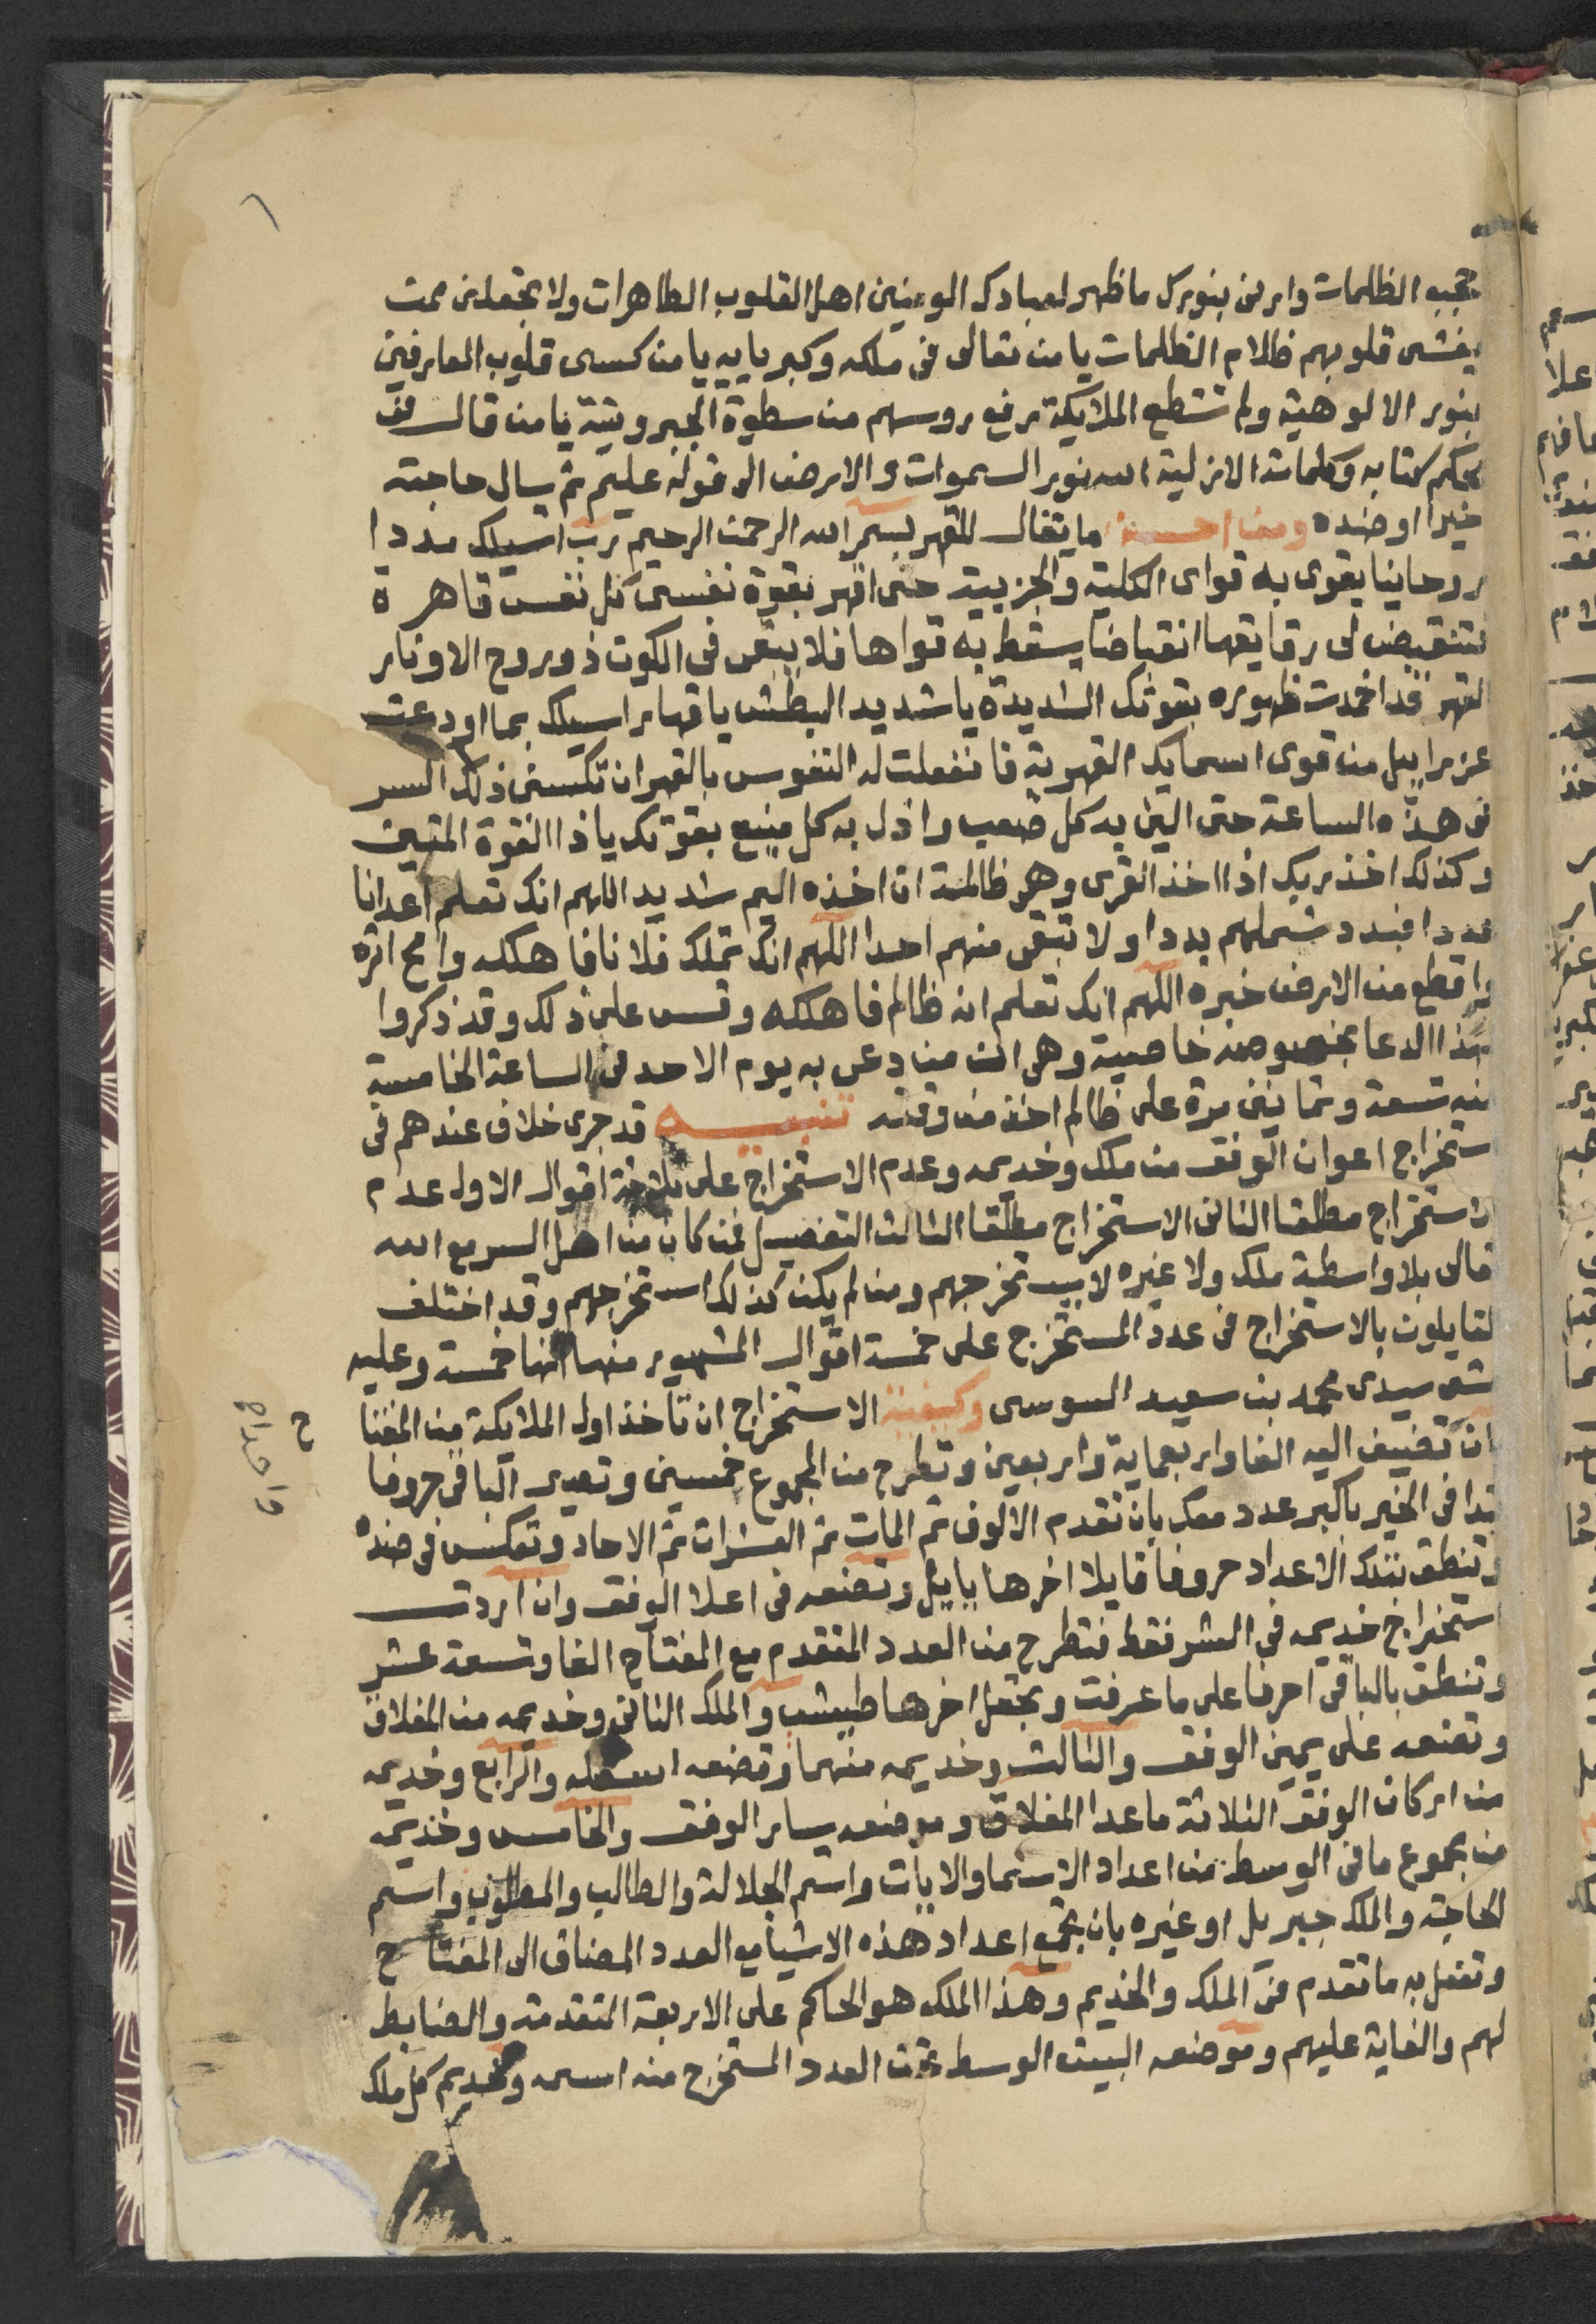 حجب الظلمات وارنى بنورك ما ظهر لعبادك المومنين اهل القلوب الطاهرات ولا تجعلنى ممن
يغشى قلوبهم ظلام الظلمات يا من تعالى فى ملكه وكبريايه يا من كسى قلوب العارفين
بنور الالوهية ولم تستطع الملايكة رفع روسهم من سطوة الجبروتية يا من قال فى
محكم كتابه وكلماته الازلية الله نور السموات والارض الى قوله عليم ثم يسال حاجته
خيرا او ضده ومن احسن ما يقال للقهر بسم الله الرحمن الرحيم رب اسيلك مددا
روحانيا يقوى به قواى الكلية والجزيية حتى اقهر بقوة نفسى كل نفس قاهرة
فتنقبض لى رقايقها انقباضا يسقط به قواها فلا يبقى فى الكون ذو روح الا ونار
القهر قد اخمدت ظهوره بقوتك الشديدة يا شديد البطش يا قهار اسيلك بما اودعته
عزراييل من قوى اسمايك القهرية فانفعلت له النفوس بالقهر ان تكسنى ذلك السر
فى هذه الساعة حتى الين به كل صعب واذل به كل منيع بقوتك ياذا القوة المتين
وكذلك اخذ ربك اذا اخذ القرى وهى ظالمة ان اخذه اليم شديد اللهم انك تعلم اعدانا
عددا فبدد شملهم بددا ولا تبقى منهم احدا اللهم انك تملك فلانا فاهلكه وامح اثره
واقطع من الارض خبره اللهم انك تعلم انه ظالم فاهلكه وقس على ذلك وقد ذكروا
لهذا الدعا بخصوصه خاصية وهى ان من دعى به يوم الاحد فى الساعة الخامسة
منه تسعة وثمانين مرة على ظالم اخذ من وقته تنبيه قد جرى خلاف عندهم فى
استخراج اعوان الوفق من ملك وخديمه وعدم الاستخراج على ثلاثة اقوال الاول عدم
الاستخراج مطلقا الثانى الاستخراج مطلقا الثالث التفصيل فمن كان من اهل السر مع الله
تعالى بلا واسطة ملك ولا غيره لا يستخرجهم ومن لم يكن كذلك استخرجهم وقد اختلف
القايلون بالاستخراج فى عدد المستخرج على خمسة اقوال المشهور منها انها خمسة وعليه
مشى سيدى محمد بن سعيد السوسى وكيفية الاستخراج ان تاخذ اول الملايكة من المفتا
ان تضيف اليه الفا واربعماية واربعين وتطرح من المجموع خمسين وتصير الباقى حروفا
تبدا فى الخير باكبر عدد معك بان تقدم الالوف ثم المات ثم العشرات ثم الاحاد وتعكس فى ضده
وتنطق بتلك الاعداد حروفا قايلا اخرها باييل وتضعه فى اعلا الوفق وان اردت
استخراج خديمه فى الشر فقط فتطرح من العدد المتقدم مع المفتاح الفا وتسعة عشر
وتنطق بالباقى احرفا على ما عرفت وتجعل اخرها طيش والملك الثانى وخديمه من المغلاق
وتضعه على يمين الوفق والثالث وخديمه منهما وتضعه اسفله والرابع وخديمه
من اركان الوفق الثلاثة ما عدا المغلاق وموضعه يسار الوفق والخامس وخديمه
من مجموع ما فى الوسط من اعداد الاسما والايات واسم الجلالة والطالب والمطلوب واسم
الحاجة والملك جبريل او غيره بان تجمع اعداد هذه الاشيا مع العدد المضاف الى المفتاح
وتفعل به ما تقدم فى الملك والخديم وهذا الملك هو الحاكم على الاربعة المتقدمة والضابط
لهم والغاية عليهم وموضعه البيت الوسط تحت العدد المستخرج منه اسمه وخديم كل ملك
ح